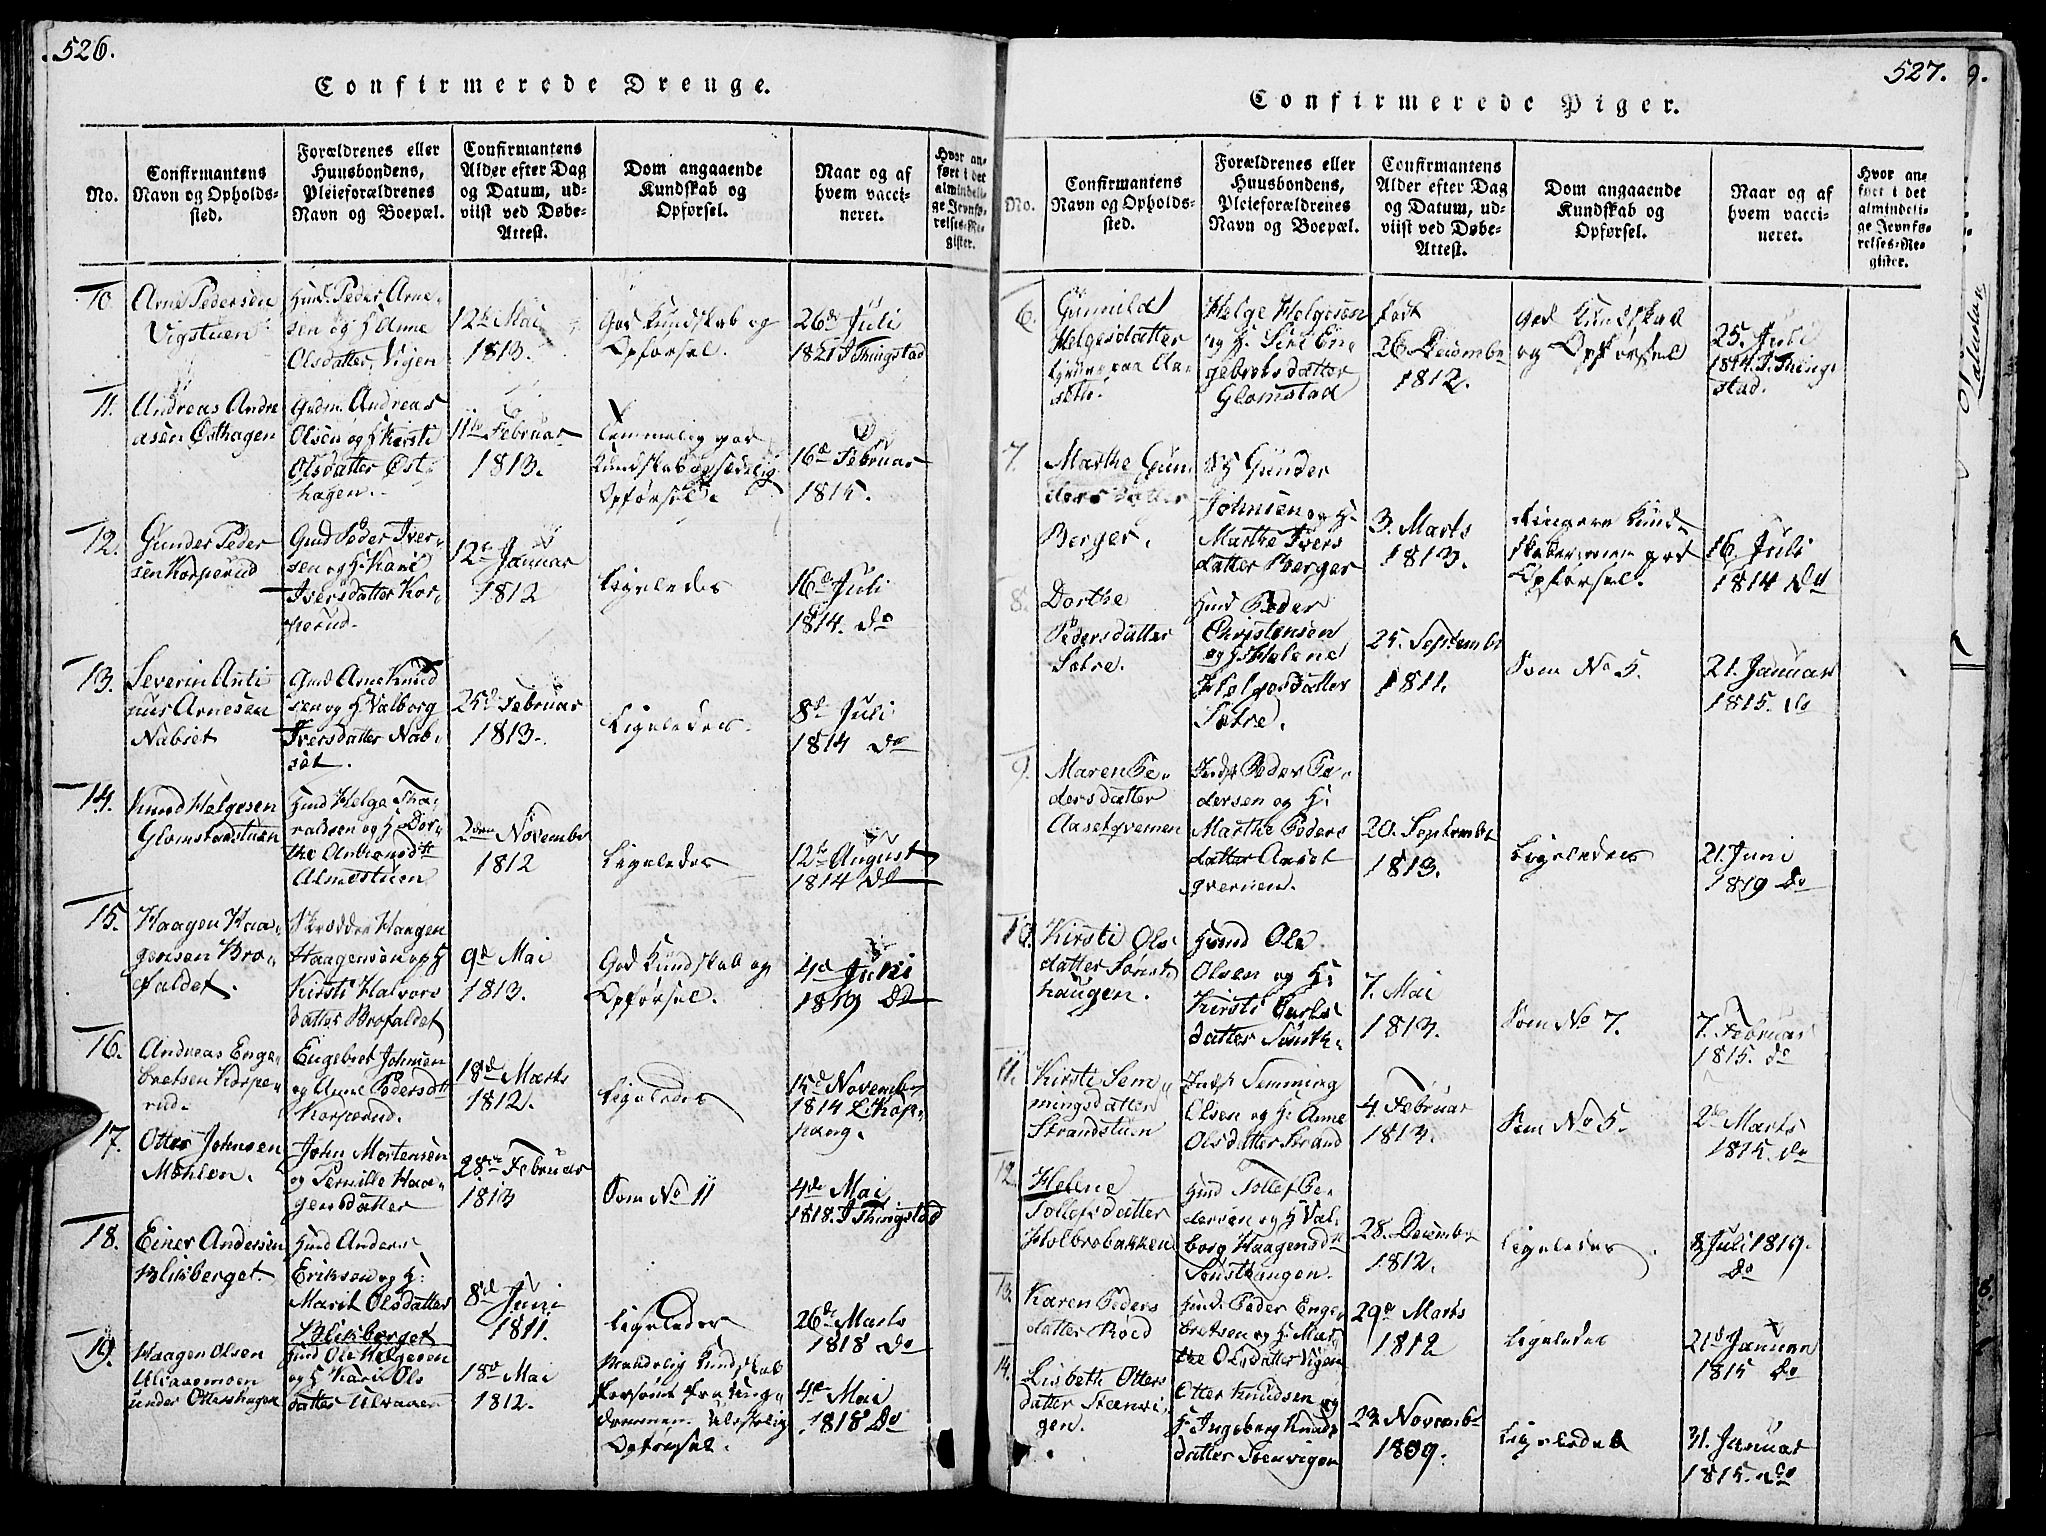 526.
Confirmerede Drenge.
No.
Confirmantens
Navn og Opholds-
sted.
Forældrenes eller
Huusbondens,
Pleieforældrenes
Navn og Boepæl.
Confirmantens
Alder efter Dag
og Datum, ud-
viist ved Døbe-
Attest.
Dom angaaende
Kundskab og
Opførsel.
Naar og af
hvem vacci-
neret.
Hvor an-
ført i det
almindeli-
ge Jevnfø-
relses-Re-
gister.
10
Arne Pedersen
Vigstuen
Huusm. Peder Arne-
sen og H Anne
Olsdatter Vigen
12te Mai
1813.
God Kundskab og
Opførsel.
26de Juli
1821 J Thingstad
11.
Andreas Andre
asen Østhagen
Gudm. Andreas
Olsen og H Kirsti
Olsdatter Øst-
hagen.
11te Februar
1813.
Temmelig god
Kundskab og sædelig
Opførsel.
16de Februar
1815.
12.
Gunder Peder
sen Korperud
Gmd Peder Iver-
sen og H. Kari
Iversdatter Kor-
perud.
12te Januar
1812
Ligeledes
16de Juli
1814. do
13.
Severin Anti
nius Arnesen
Nabset
Gmd Arne Knud
sen og H Valborg
Iversdatter Nab-
set.
25de Februar
1813.
Ligeledes.
8de Juli
1814 do
14.
Knud Helgesen
Glomstadstuen
Hmd Helge Tha-
raldsen og H Dor-
the
Almestuen
2den November
1812
Ligeledes
12te August
1814 do
15.
Haagen Haa-
gensen Bro-
faldet.
Skrædder Haagen
Haagensen og H
Kirsti Halvors
datter Brofaldet
9de Mai
1813.
God Kundskab og
Opførsel.
4de Juni
1819 do
16.
Andreas Enge-
bretsen Korpe-
rud.
Engebret Johnsen
og Anne Pedersdtr
Korperud.
18de Marts
1812.
Ligeledes
15de November
1814 L. Kop-
pang.
17.
Otter Johnsen
Mohlen.
John Mortensen
og Pernille Haa-
gensdatter
28de Februar
1813
Som No 11
4de Mai
1818. J Thingstad
18.
Einer Andersen
Blikberget.
Hmd Anders
Eriksen og H:
Marit Olsdatter
Blikberget
8de Juni
1811.
Ligeledes
26de Marts
1818 do
19.
Haagen Olsen
Ulvaamoen
under Ottershagen
Hmd Ole Helgesen
og H Kari Ols
datter Ulvaaen
18de Mai
1812.
Maadelig Kundskab
forsømt fra Ung-
dommen.
Opførsel.
4de Mai
1818 do
527.
Confirmerede Piger.
No.
Confirmantens
Navn og Opholds-
sted.
Forældrenes eller
Huusbondens,
Pleieforældrenes
Navn og Boepæl.
Confirmantens
Alder efter Dag
og Datum, ud-
viist ved Døbe-
Attest.
Dom angaaende
Kundskab og
Opførsel.
Naar og af
hvem vacci-
neret.
Hvor an-
ført i det
almindeli-
ge Jevnfø-
relses-Re-
gister.
6.
Gunnild
Helgesdatter
Helge Helgesen
og H. Siri En-
gebretsdatter
Glomstad
født
26 Decembr
1812.
god Kundskab
og Opførsel
25. Juli
1814. J. Thing-
stad.
7.
Marthe Gun
dersdatter
Berger.
Gunder
Johnsen og H.
Marthe Ivers
datter Berger
3. Marts
1813.
Ringere Kund-
skaber men god
Opførsel.
16. Juli
1814 do
8.
Dorthe
Pedersdatter
Sætre.
Hmd Peder
Christensen
og H. Helene
Helgesdatter
Sætre.
25. Septembr
1811.
Som No 5.
21. Januar
1815. do
9.
Maren Pe-
dersdatter
Aasetqvernen
Inds. Peder Pe-
dersen og H:
Marthe Peders
datter Aaset
qvernen.
20. Septembr
1813.
Ligeledes
21. Juni
1819 do
10.
Kirsti Ols
datter Sønst
haugen.
Hmd Ole
Olsen og H:
Kirsti Lars
datter Sønsth.
7. Mai
1813.
Som No 7.
7. Februar
1815. do
11.
Kirsti Sem-
mingsdatter
Strandstuen
Inds. Semming
Olsen og H: Anne
Olsdatter Strand
4. Februar
1813.
Som No 5.
2de Marts
1815. do
12.
Helene
Tollefsdatter
Holbrobakken
Hmd Tollef Pe-
dersen og H Val-
borg Haagensdtr
Sønsthaugen.
28. Decembr
1812.
Ligeledes.
8 Juli 1819.
do
13.
Karen Peders
datter Röed
Hmd. Peder Enge
bretsen og H: Mar
the Olsdatter Vigen
29de Marts
1812
Ligeledes
21de Januar
1815 do
14.
Lisbeth Otters
datter Steenvi-
gen.
Otter Knudsen og
H. Ingeborg Knuds
datter Steenvigen
23. Novembr
1809.
Ligeledes
31. Januar
1815. do